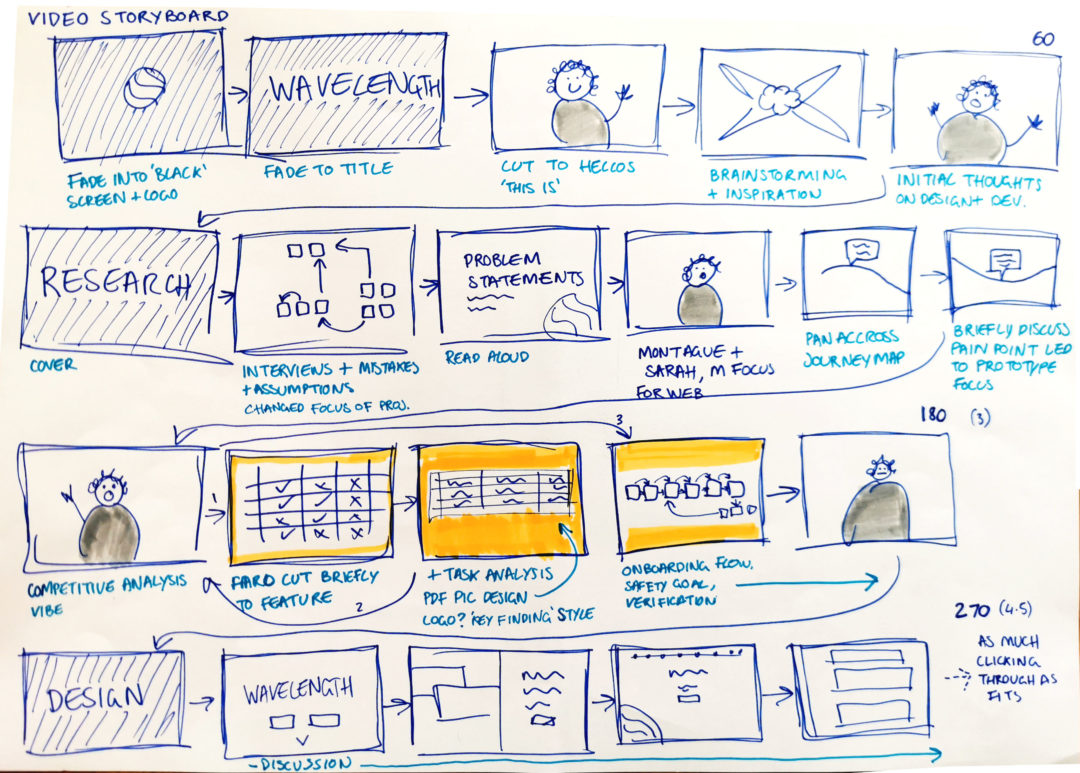 VIDEO STORYBOARD
60
WAVELENGTH
FADE INTO 'BLACK'
SCREEN + LOGO
FADE TO TITLE
CUT TO HELLOS
'THIS IS'
BRAINSTORMING
+ INSPIRATION
INITIAL THOUGHTS
ON DESIGN + DEV.
RESEARCH
PROBLEM
STATEMENTS
COVER
INTERVIEWS + MISTAKES
+ ASSUMPTIONS
CHANGED FOCUS OF PROJ.
READ ALOUD
MONTAGUE +
SARAH, M FOCUS
FOR WEB
PAN ACCROSS
JOURNEY MAP
BRIEFLY DISCUSS
PAIN POINT LED
TO PROTOTYPE
FOCUS
180 (3)
3
1
COMPETITIVE ANALYSIS
VIBE
HARD CUT BRIEFLY
TO FEATURE
2
+ TASK ANALYSIS
PDF PIC DESIGN
LOGO? 'KEY FINDING' STYLE
ONBOARDING FLOW,
SAFETY GOAL,
VERIFICATION
270 (4.5)
DESIGN
WAVELENGTH
AS MUCH
CLICKING
THROUGH AS
FITS
- DISCUSSION